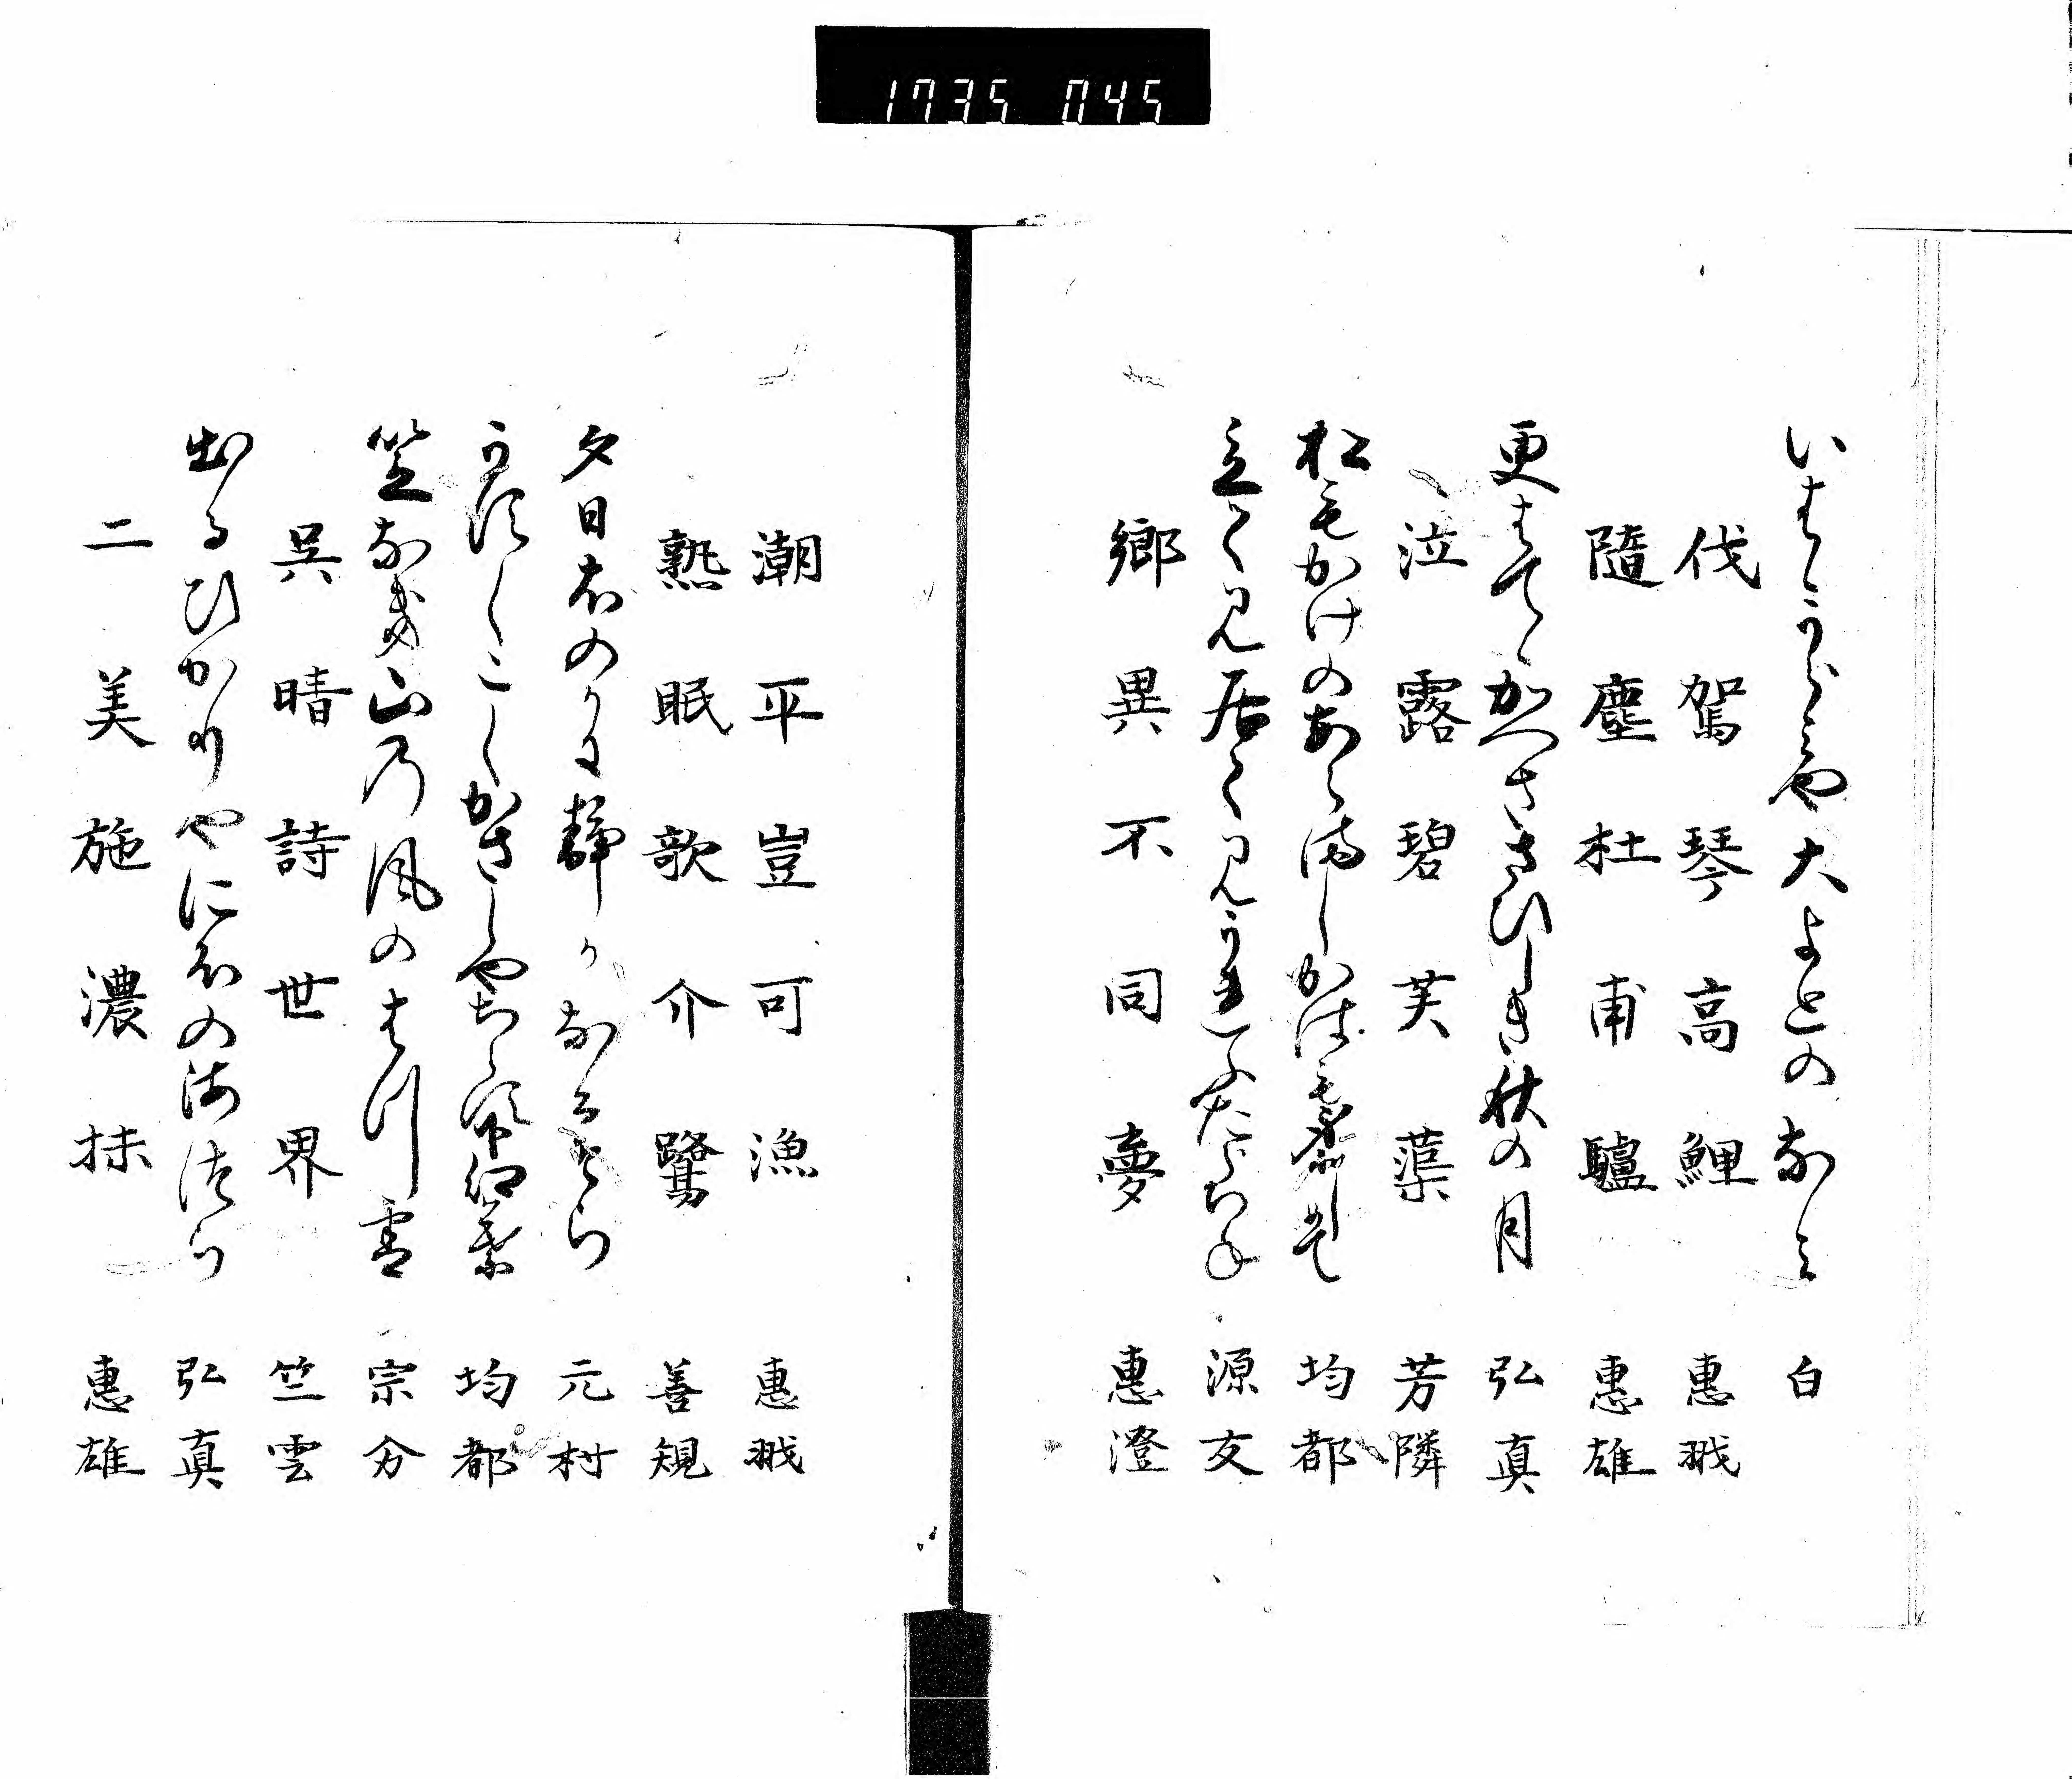 1735 045
いはゝうらみや大よとのなみ 白
伐駕琴高鯉 惠戕
隨塵杜甫驢 惠雄
更はてゝかへささひしき秋の月 弘真
泣露碧芙蕖 芳隣
松もかけのあらましかは 均都
立て見居て見うれふたらちね 源友
鄉異不同夢 惠澄
潮平豈可漁 惠戕
熟眠歌介鷺 善規
夕日影のとに静かなるそら 元村
うすくこくかさしやちらす 均都
笠なき山の風のはつ雪 宗分
呉晴詩世界 竺雲
出るひかりやにほの海つら 弘真
二美施濃抹 惠雄